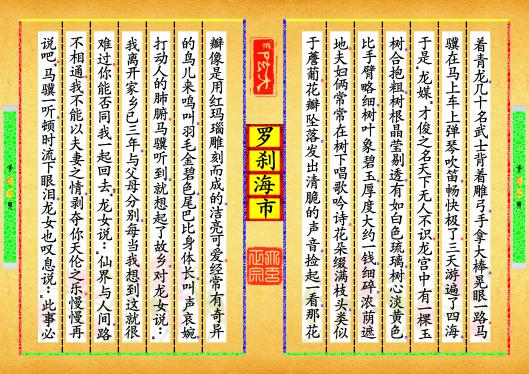 着青龙几十名武士背着雕弓手拿大棒晃眼一路马
骥在马上车上弹琴吹笛畅快极了三天游遍了四海
于是“龙媒”才俊之名天下无人不识龙宫中有一棵玉
树合抱粗树根晶莹剔透有如白色琉璃树心淡黄色
比手臂略细树叶象碧玉厚度大约一钱细碎浓荫遮
地夫妇俩常常在树下唱歌吟诗花朵缀满枝头类似
于薝蔔花瓣坠落发出清脆的声音捡起一看那花
罗刹海市
瓣像是用红玛瑙雕刻而成的洁亮可爱经常有奇异
的鸟儿来鸣叫羽毛金碧色尾巴比身体长叫声哀婉
打动人的肺腑马骥听到就想起了故乡对龙女说:
我离开家乡已三年与父母分别每当我想到这就很
难过你能否同我一起回去”龙女说:“仙界与人间路
不相通我不能以夫妻之情剥夺你天伦之乐慢慢再
说吧”马骥一听顿时流下眼泪龙女也叹息说:“此事必